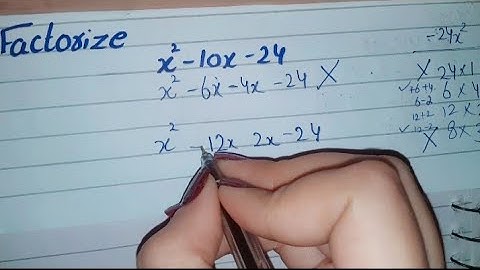 Factorize
x² - 10x - 24
x² - 6x - 4x - 24 X
x² - 12x 2x - 24
- 24x²
X 24 x 1
✓ +6 +4 6 x 4
6-2
12+2 12 x
✓ 12-2
X 8 x 3